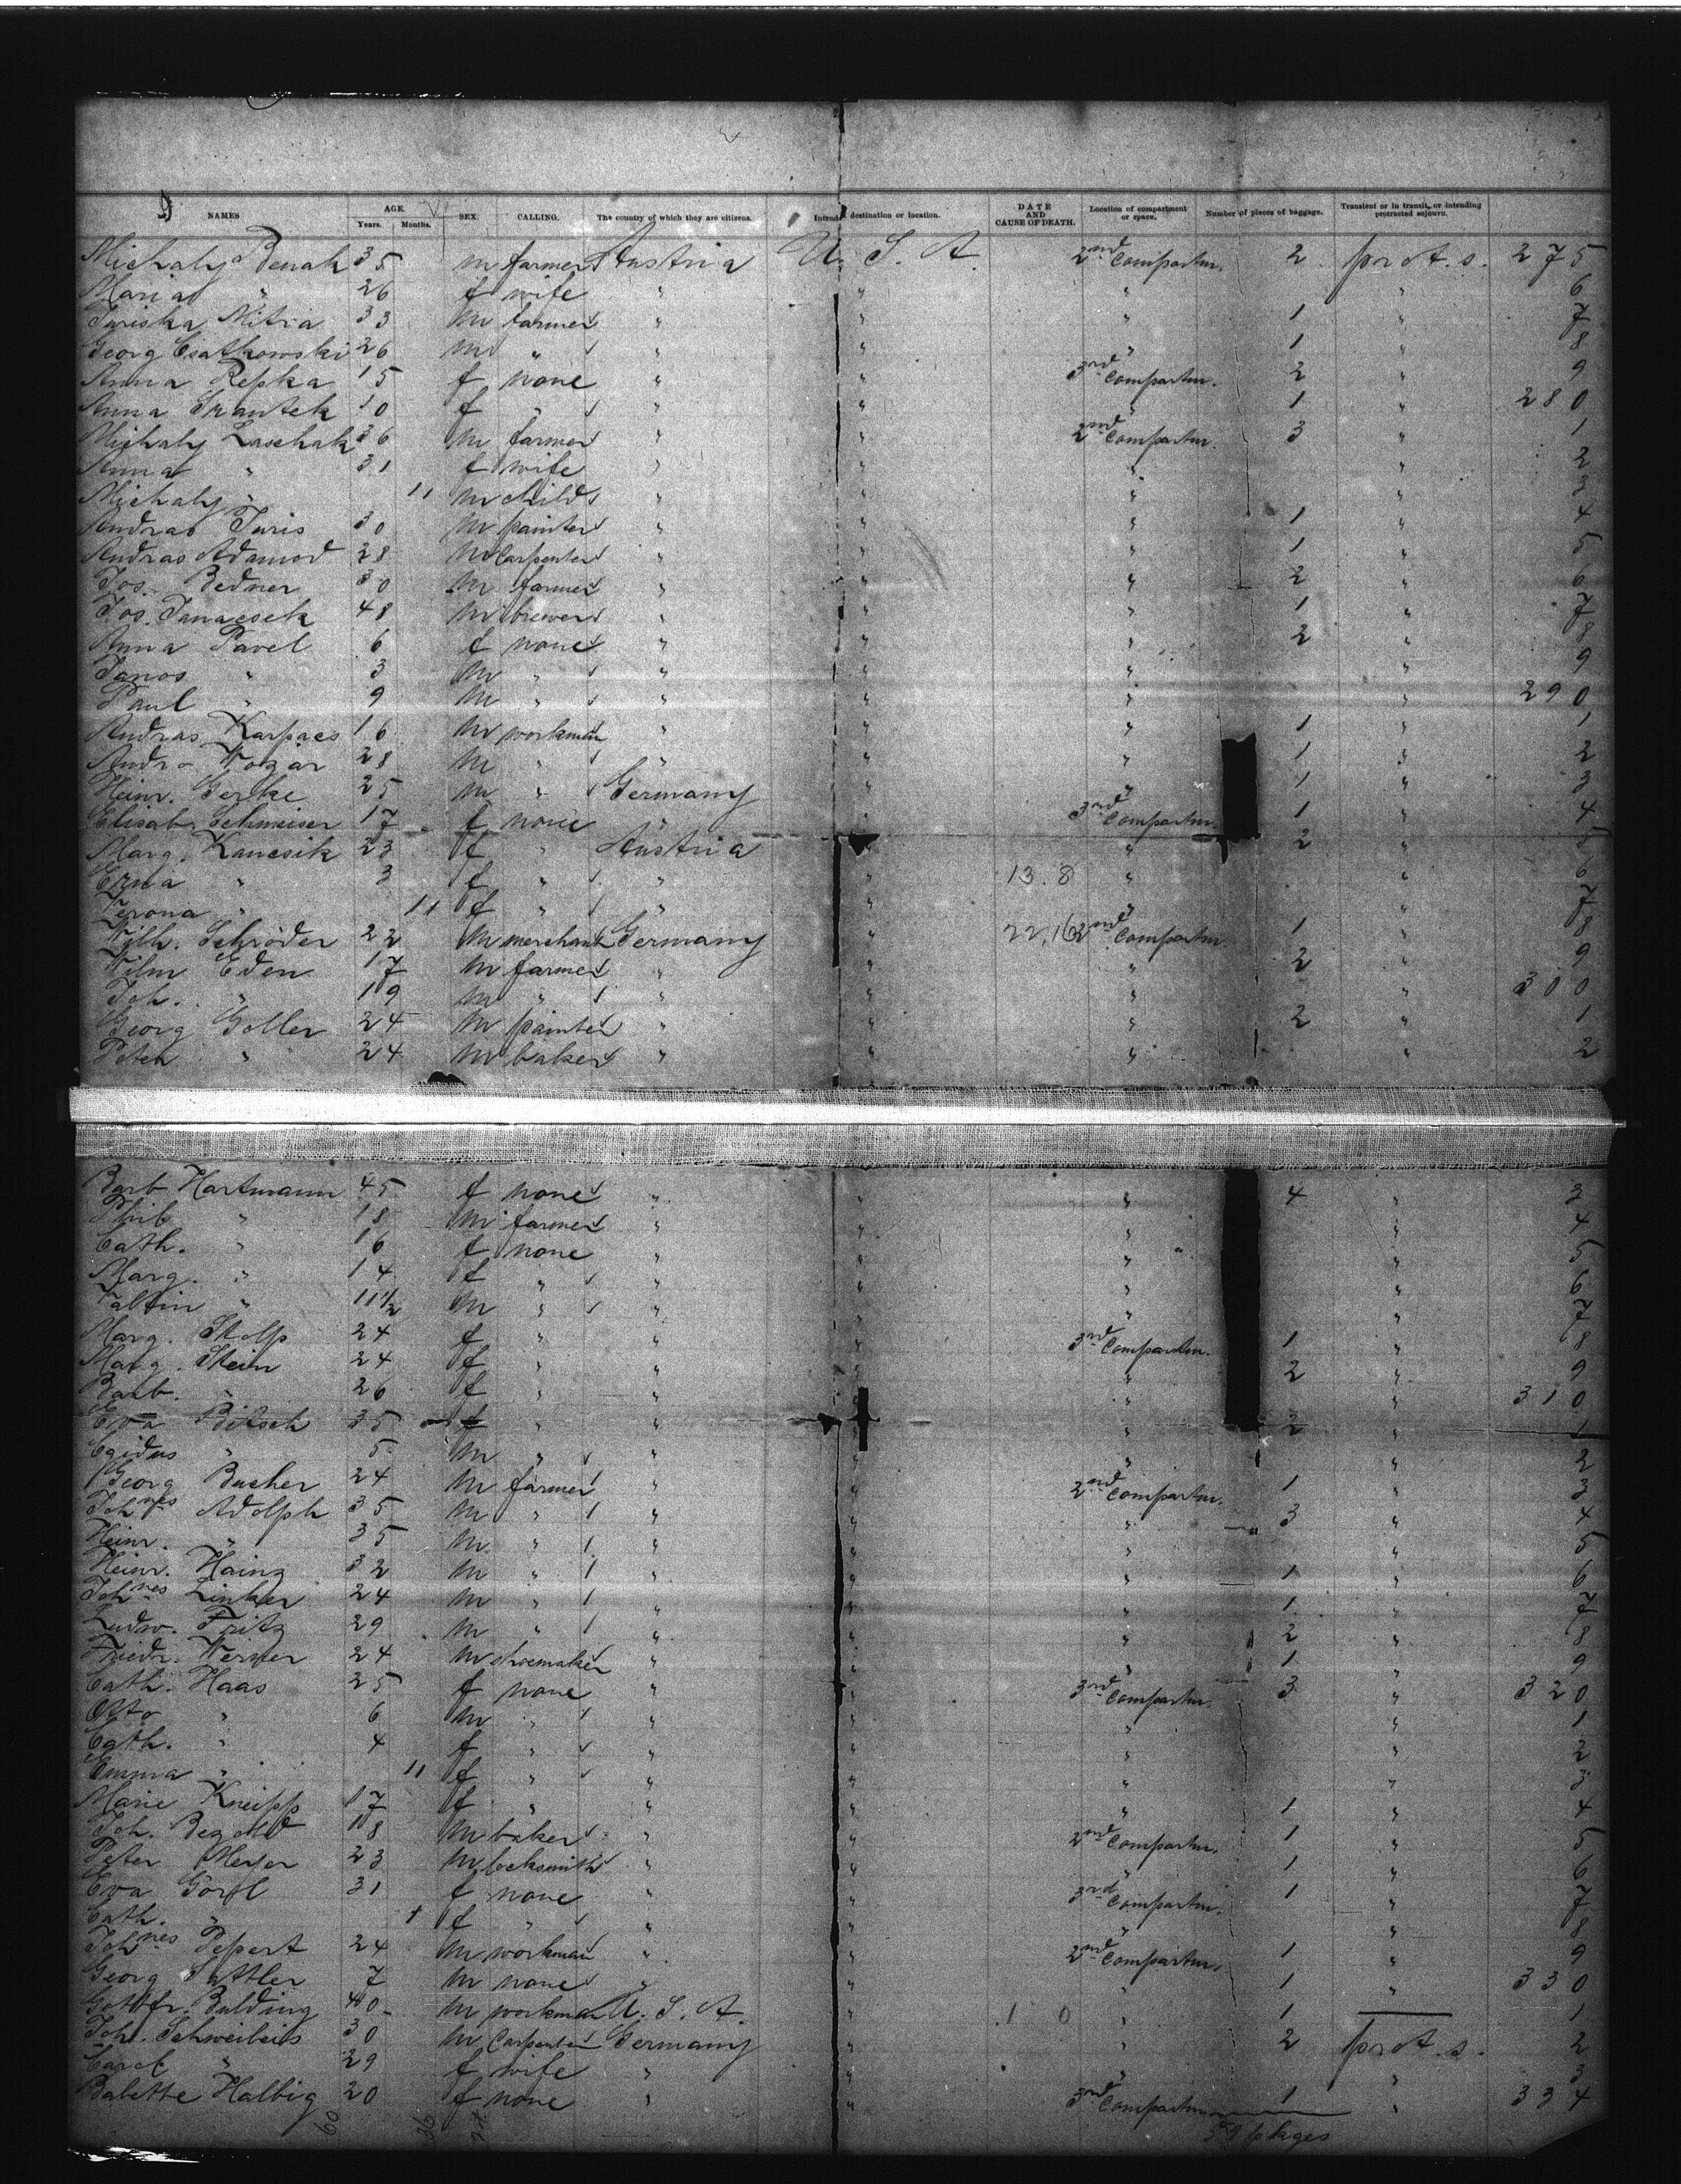 NAMES AGE. Years. Months. SEX. CALLING. The country of which they are citizens. Intend destination or location. DATE AND CAUSE OF DEATH. Location of compartment or space. Number of pieces of baggage. Transient or in transit, or intending protracted sojourn.
Michaly Benak 35 m farmer Austria U. S. A. 2nd Compartm. 2 protr. s. 275
Maria " 26 f wife " " " " 6
Juriska Mitra 33 m farmer " " " 1 " 7
Georg Csatkowski 26 m " " " " 1 " 8
Anna Repka 15 f none " " 3rd Compartm. 2 " 9
Anna Frantek 10 f " " " " 1 " 280
Michaly Laschak 36 m farmer " " 2nd Compartm. 3 " 1
Anna " 31 f wife " " " " 2
Michaly " 11 m child " " " " 3
Andras Juris 30 m painter " " " 1 " 4
Andras Adamod 28 m Carpenter " " " 1 " 5
Jos. Bedner 30 m farmer " " " 2 " 6
Jos. Janacsek 48 m brewer " " " 1 " 7
Anna Pavel 6 f none " " " 2 " 8
Janos " 3 m " " " " " 9
Paul " 9 m " " " " " 290
Andras Karpacs 16 m workman " " " 1 " 1
Andro Wozar 28 m " " " " 1 " 2
Heinr. Gerke 25 m " Germany " " 1 " 3
Elisab. Schmeiser 17 f none " " 3rd Compartm. 1 " 4
Marg. Kancsik 23 f " Austria " " 2 " 5
Erna " 3 f " " " 13.8 " " 6
Verona " 11 f " " " " " 7
Wilh. Schröder 22 m merchant Germany " 22,16 2nd Compartm. 1 " 8
Wilm Eden 17 m farmer " " " 2 " 9
Joh. " 19 m " " " " " 300
Georg Goller 24 m painter " " " 2 " 1
Peter " 24 m baker " " " " 2
Barb Hartmann 45 f none " " " 4 " 3
Phil " 18 m farmer " " " " 4
Cath. " 16 f none " " " " 5
Marg. " 14 f " " " " " 6
Valtin " 11 1/2 m " " " " " 7
Marg. Stolp 24 f " " " 3rd Compartm. 1 " 8
Marg. Stein 24 f " " " " 2 " 9
Barb. " 26 f " " " " " 310
Eva Bitsch 35 f " " " " 2 " 1
Egidus " 5 m " " " " " 2
Georg Bucher 24 m farmer " " 2nd Compartm. 1 " 3
Johnes Adolph 35 m " " " " 3 " 4
Heinr. " 35 m " " " " " 5
Heinr. Hainz 32 m " " " " 1 " 6
Johnes Linker 24 m " " " " 1 " 7
Ludw. Fritz 29 m " " " " 2 " 8
Friedr. Werner 24 m shoemaker " " " 1 " 9
Cath. Haas 25 f none " " 3rd Compartm. 3 " 320
Otto " 6 m " " " " " 1
Cath. " 4 f " " " " " 2
Emma " 11 f " " " " " 3
Marie Kneipp 17 f " " " " 1 " 4
Joh. Bezold 18 m baker " " 2nd Compartm. 1 " 5
Peter Meyer 23 m locksmith " " " 1 " 6
Eva Görtl 31 f none " " 3rd Compartm. 1 " 7
Cath. " 1 f " " " " " 8
Johnes Pepert 24 m workman " " 2nd Compartm. 1 " 9
Georg Sattler 7 m none " " " 1 " 330
Gottfr. Bulding 40 m workman U. S. A. 1 0 " 1 1
Joh. Schweibeis 30 m Carpenter Germany " " 2 protr. s. 2
Carol " 29 f wife " " " " 3
Babette Halbig 20 f none " " 3rd Compartm. 1 " 334
60 36 24 59 pkges